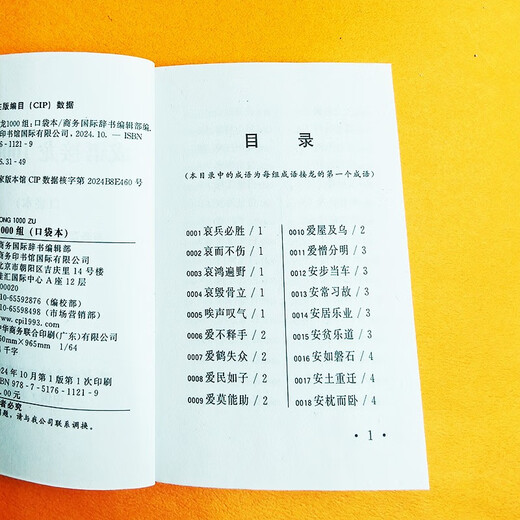 在版编目 (CIP) 数据
龙1000组：口袋本/商务国际辞书编辑部编.
印书馆国际有限公司, 2024.10. — ISBN
6-1121-9
S.31-49
家版本馆 CIP 数据核字第 2024B8E460 号
ONG 1000 ZU
000组 (口袋本)
商务国际辞书编辑部
商务印书馆国际有限公司
北京市朝阳区吉庆里 14 号楼
佳汇国际中心 A 座 12 层
00020
10-65592876 (编校部)
10-65598498 (市场营销部)
.cpi1993.com
中华商务联合印刷(广东)有限公司
50mm×965mm 1/64
千字
24 年 10 月第 1 版第 1 次印刷
BN 978-7-5176-1121-9
.00 元
者必究
问题, 请与我公司联系调换。
目 录
(本目录中的成语为每组成语接龙的第一个成语)
0001 哀兵必胜 / 1
0002 哀而不伤 / 1
0003 哀鸿遍野 / 1
0004 哀毁骨立 / 1
0005 唉声叹气 / 1
0006 爱不释手 / 2
0007 爱鹤失众 / 2
0008 爱民如子 / 2
0009 爱莫能助 / 2
0010 爱屋及乌 / 2
0011 爱憎分明 / 3
0012 安步当车 / 3
0013 安常习故 / 3
0014 安居乐业 / 3
0015 安贫乐道 / 3
0016 安如磐石 / 4
0017 安土重迁 / 4
0018 安枕而卧 / 4
• 1 •